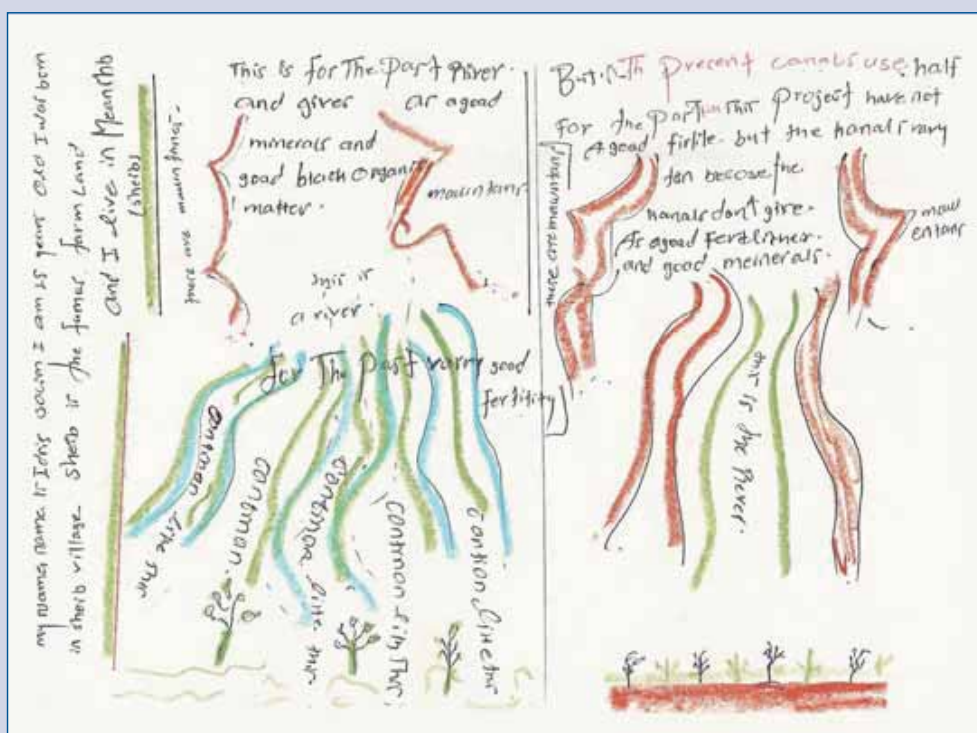 my name name is Idris Salim I am 25 year old I was born
in sheib village sheib is the fumas farm land
and I live in
(sheib)
there are mountans
This is for The Past River.
and gives as a good
minerals and
good black organic
matter.
mountans
this is
a river.
for The Past varry good
fertility
contonan like thir
contonan.
contonoa like thir
contnon lik This
contion like thir
But Th present canals use half
For the Part this Project have not
A good firtile. but the kanals vary
ten become the
kanals don't give.
As a good Fertilizer.
and good meinerals.
there are mountans
moun
entans
this is the Rever.